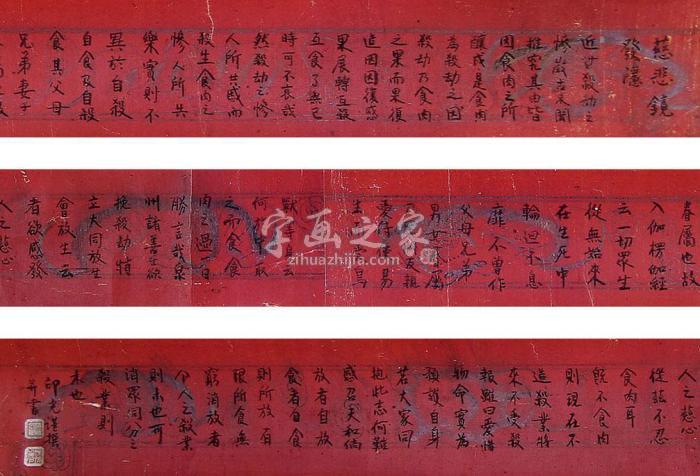 慈悲鏡
發隱
近世殺劫之
慘豈忍見聞
推究其由皆
因食肉之所
釀成是食肉
為殺劫之因
殺劫乃食肉
之果而果復
造因因復感
果展轉互殺
互食了無已
時可不哀哉
然殺劫之慘
人所共感而
殺生食肉之
慘人所共
樂實則不
異於自殺
自食及自殺
食其父母
兄弟妻子
眷屬也故
入伽楞伽經
云一切眾生
從無始來
在生死中
輪回不息
靡不曾作
父母兄弟
男女眷屬
乃至朋友親
愛侍使易
生鳥
獸等云
何於中取
之而食食
肉之過百
勝言哉泉
州諸善士欲
挽殺劫特
立大同放生
會放生云
者欲感發
人之慈心
字画之家
zihuazhijia.com
人之慈心
從茲不忍
食肉耳
既不食肉
則現在不
造殺業將
來不受殺
報雖曰愛惜
物命實為
護自身
若大家同
抱此志何難
感召天和倘
放者自放
食者自食
則所放有
限所食無
窮消放者
个人之殺業
則未也可
消眾同分之
殺業則
未也
印光謹撰
并書